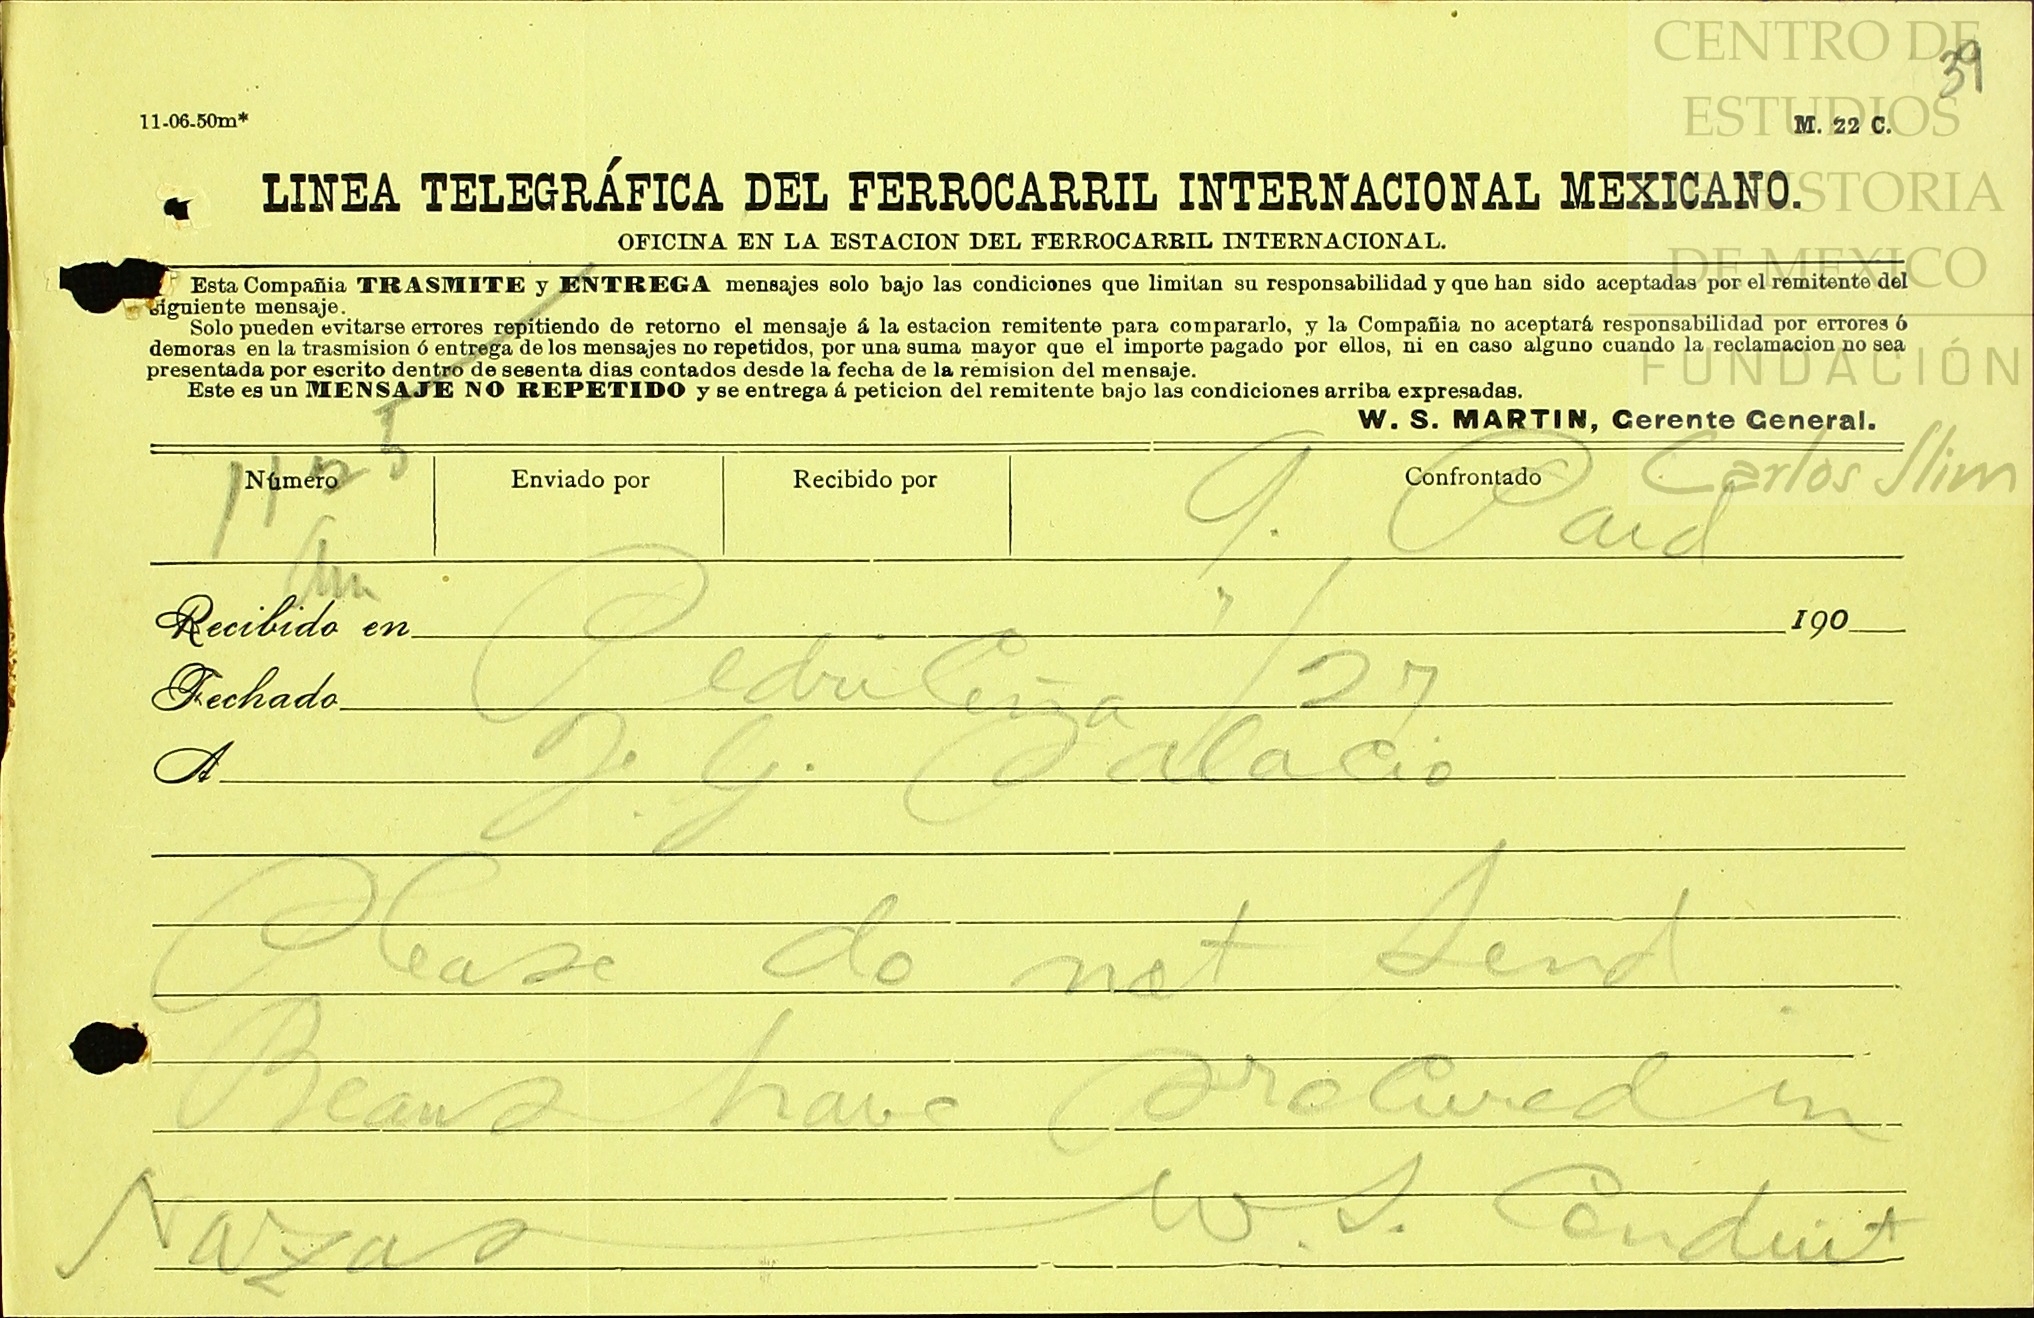 CENTRO DE
ESTUDIOS
DE HISTORIA
DE MEXICO
FUNDACIÓN
Carlos Slim
39
11-06-50m*
M. 22 C.
LINEA TELEGRÁFICA DEL FERROCARRIL INTERNACIONAL MEXICANO.
OFICINA EN LA ESTACION DEL FERROCARRIL INTERNACIONAL.
Esta Compañia TRASMITE y ENTREGA mensajes solo bajo las condiciones que limitan su responsabilidad y que han sido aceptadas por el remitente del
siguiente mensaje.
Solo pueden evitarse errores repitiendo de retorno el mensaje á la estacion remitente para compararlo, y la Compañia no aceptará responsabilidad por errores ó
demoras en la trasmision ó entrega de los mensajes no repetidos, por una suma mayor que el importe pagado por ellos, ni en caso alguno cuando la reclamacion no sea
presentada por escrito dentro de sesenta dias contados desde la fecha de la remision del mensaje.
Este es un MENSAJE NO REPETIDO y se entrega á peticion del remitente bajo las condiciones arriba expresadas.
W. S. MARTIN, Gerente General.
Número Enviado por Recibido por Confrontado
1125
9. Paid
am
Recibido en 190
Fechado Pedriceña 7/27
A J. G. Palacio
Please do not send
Beans have procured in
Nazas W. S. Conduit